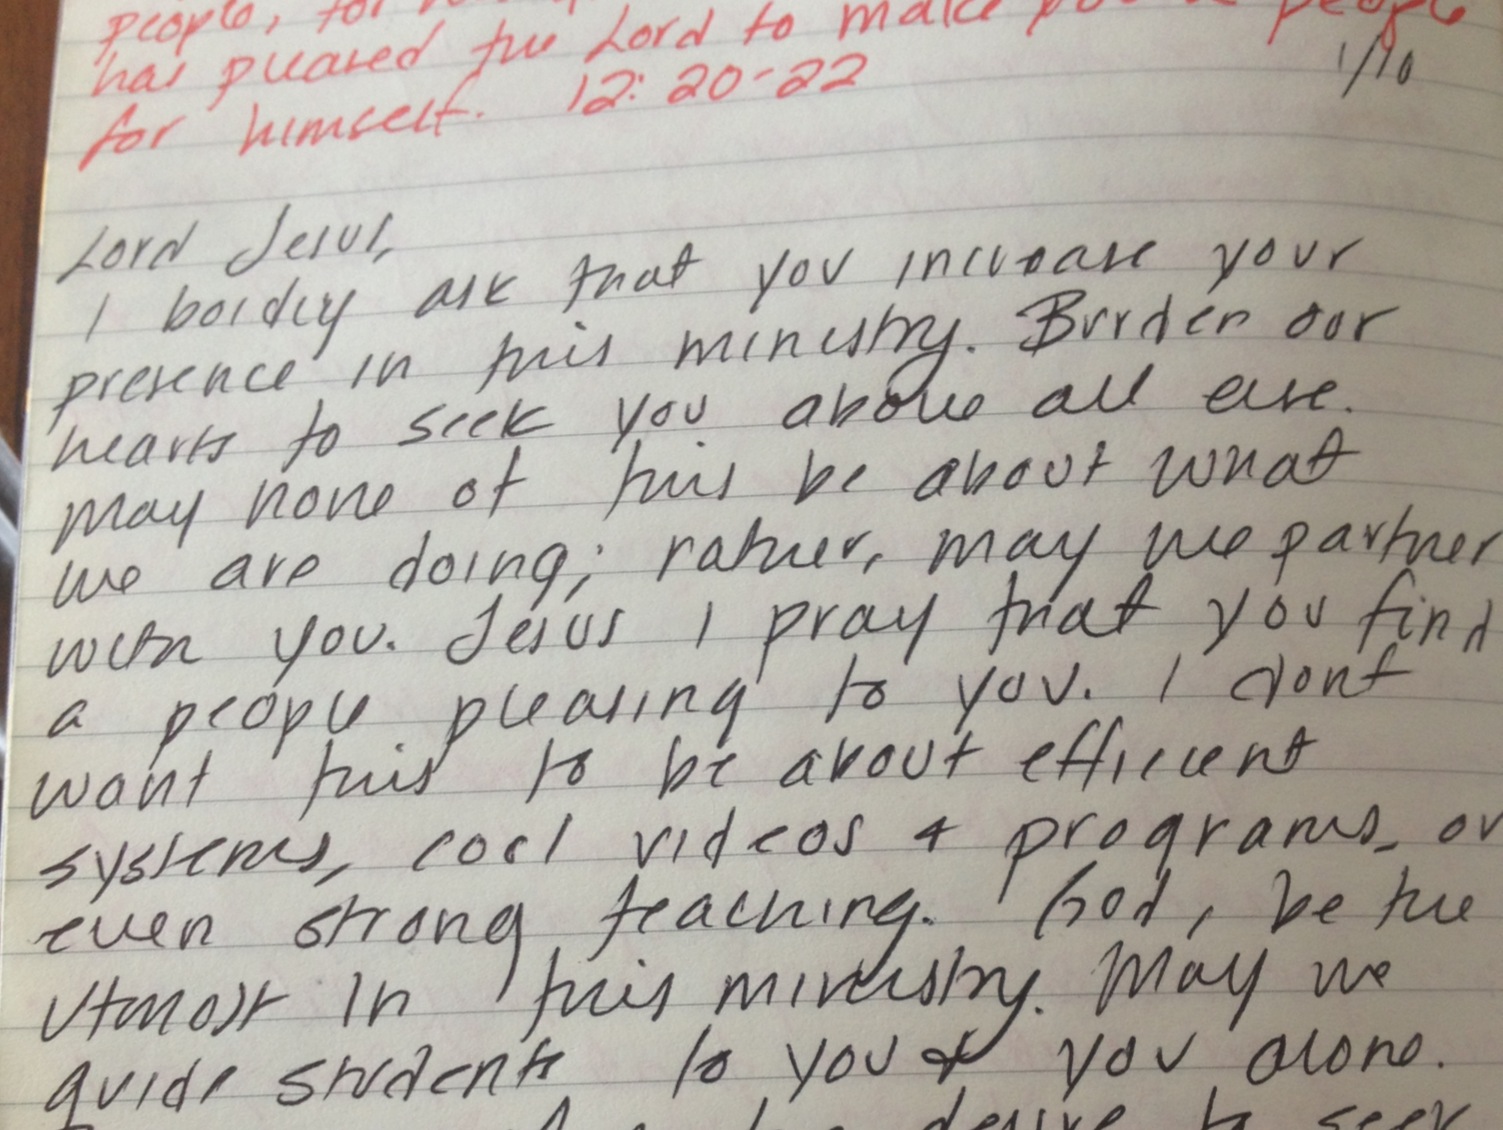 people, for
has pleased the Lord to make you a people
for himself. 12:20-22
1/10
Lord Jesus,
I boldly ask that you increase your
presence in this ministry. Burden our
hearts to seek you above all else.
May none of this be about what
we are doing; rather, may we partner
with you. Jesus I pray that you find
a people pleasing to you. I dont
want this to be about efficient
systems, cool videos & programs, or
even strong teaching. God, be the
utmost in this ministry. May we
guide students to you & you alone.
desire to seek